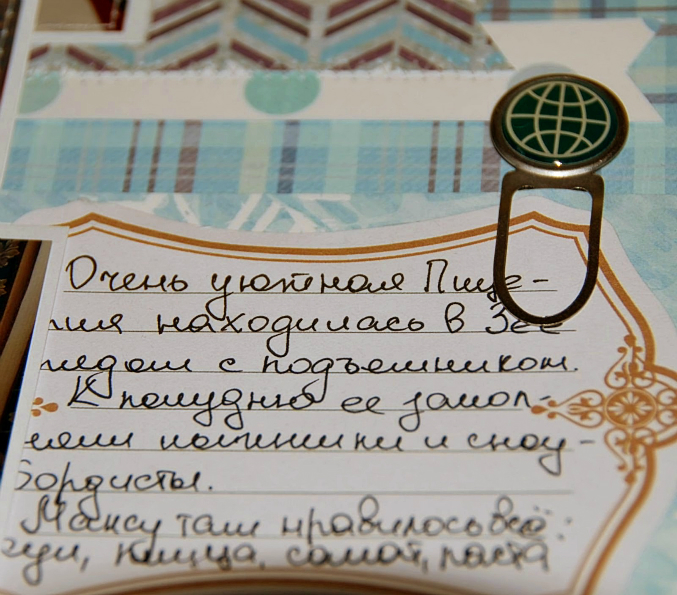 Очень уютная Пице-
рия находилась в Зее
рядом с подъемником.
К полудню ее запол-
няли лыжники и сноу-
бордисты.
Максу там нравилось всё:
пицца, салат, паста